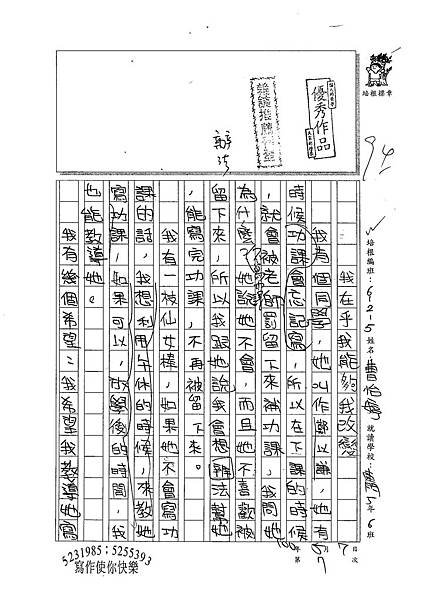 優秀作品
培根標章
94
辦法
培根編班：6 2-5 姓名 曹怡
就讀學校：
5年6班
我在乎我能夠我改變
我有個同學，她叫作鄭以謙，她有
時候功課會忘記寫，所以在下課的時候
，就會被老師罰留下來補功課，我問她
為什麼？她說她不會，而且她不喜歡被
留下來，所以我跟她說我會想辦法幫她
，能寫完功課，不再被留下來。
我有一枝仙女棒，如果她不會寫功
課的話，我想利用午休的時候，來教她
寫功課，如果可以，放學後的時間，我
也能教導她。
我有幾個希望：我希望我教導她寫
5231985；5255393
寫作使你快樂